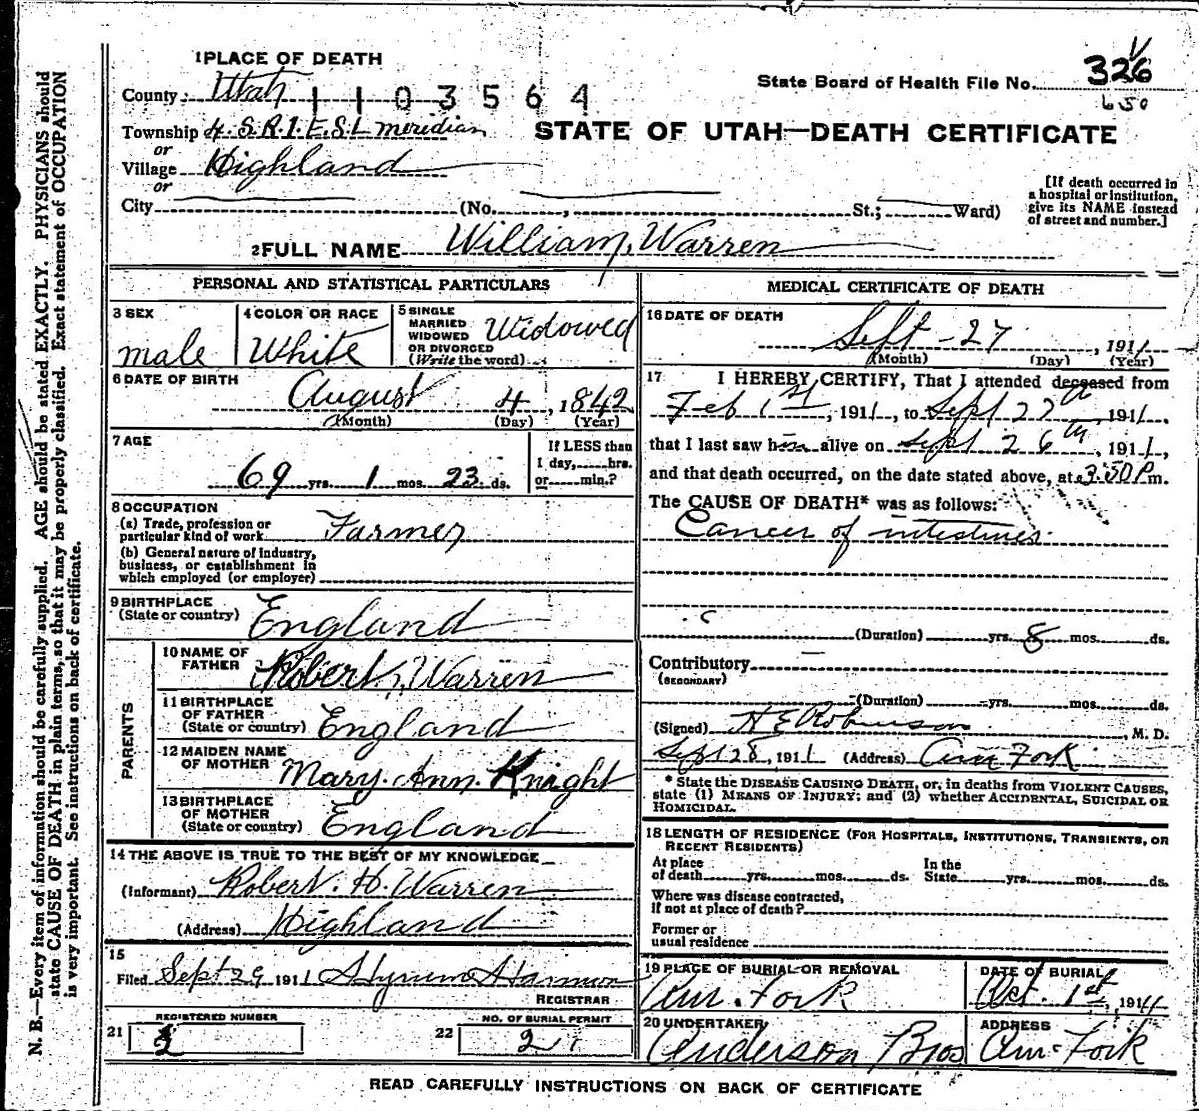 1 PLACE OF DEATH
County: Utah 1103564
State Board of Health File No. 326
650
Township 4. S. R. 1. E. S. L meridian
or
Village Highland
or
STATE OF UTAH—DEATH CERTIFICATE
City (No. , St.; Ward)
[If death occurred in a hospital or institution, give its NAME instead of street and number.]
2 FULL NAME William, Warren
PERSONAL AND STATISTICAL PARTICULARS
3 SEX
male
4 COLOR OR RACE
White
5 SINGLE
MARRIED
WIDOWED
OR DIVORCED
(Write the word)
Widowed
6 DATE OF BIRTH
August 4, 1842
(Month) (Day) (Year)
7 AGE
69 yrs. 1 mos. 23 ds.
If LESS than
1 day, hrs.
or min.?
8 OCCUPATION
(a) Trade, profession or
particular kind of work Farmer
(b) General nature of industry,
business, or establishment in
which employed (or employer)
9 BIRTHPLACE
(State or country) England
PARENTS
10 NAME OF
FATHER Robert, Warren
11 BIRTHPLACE
OF FATHER
(State or country) England
12 MAIDEN NAME
OF MOTHER Mary. Ann. Knight
13 BIRTHPLACE
OF MOTHER
(State or country) England
14 THE ABOVE IS TRUE TO THE BEST OF MY KNOWLEDGE
(Informant) Robert. H. Warren
(Address) Highland
15
Filed Sept 29 1911
REGISTRAR
21 REGISTERED NUMBER
2
22 NO. OF BURIAL PERMIT
2
MEDICAL CERTIFICATE OF DEATH
16 DATE OF DEATH
Sept - 27, 1911
(Month) (Day) (Year)
17 I HEREBY CERTIFY, That I attended deceased from
Feb 1st, 1911, to Sept 27th 1911,
that I last saw him alive on Sept 26th, 1911,
and that death occurred, on the date stated above, at 3:30 P m.
The CAUSE OF DEATH* was as follows:
Cancer of intestines.
(Duration) yrs. 8 mos. ds.
Contributory
(SECONDARY)
(Duration) yrs. mos. ds.
(Signed) H E Robinson, M. D.
Sept 28, 1911 (Address) Am Fork
* State the DISEASE CAUSING DEATH, or, in deaths from VIOLENT CAUSES,
state (1) MEANS OF INJURY; and (2) whether ACCIDENTAL, SUICIDAL OR
HOMICIDAL.
18 LENGTH OF RESIDENCE (FOR HOSPITALS, INSTITUTIONS, TRANSIENTS, OR
RECENT RESIDENTS)
At place
of death yrs. mos. ds.
In the
State yrs. mos. ds.
Where was disease contracted,
if not at place of death?
Former or
usual residence
19 PLACE OF BURIAL OR REMOVAL
Am. Fork
DATE OF BURIAL
Oct. 1st, 1911
20 UNDERTAKER
Anderson Bros
ADDRESS
Am. Fork
READ CAREFULLY INSTRUCTIONS ON BACK OF CERTIFICATE
N. B.—Every item of information should be carefully supplied. AGE should be stated EXACTLY. PHYSICIANS should
state CAUSE OF DEATH in plain terms, so that it may be properly classified. Exact statement of OCCUPATION
is very important. See instructions on back of certificate.